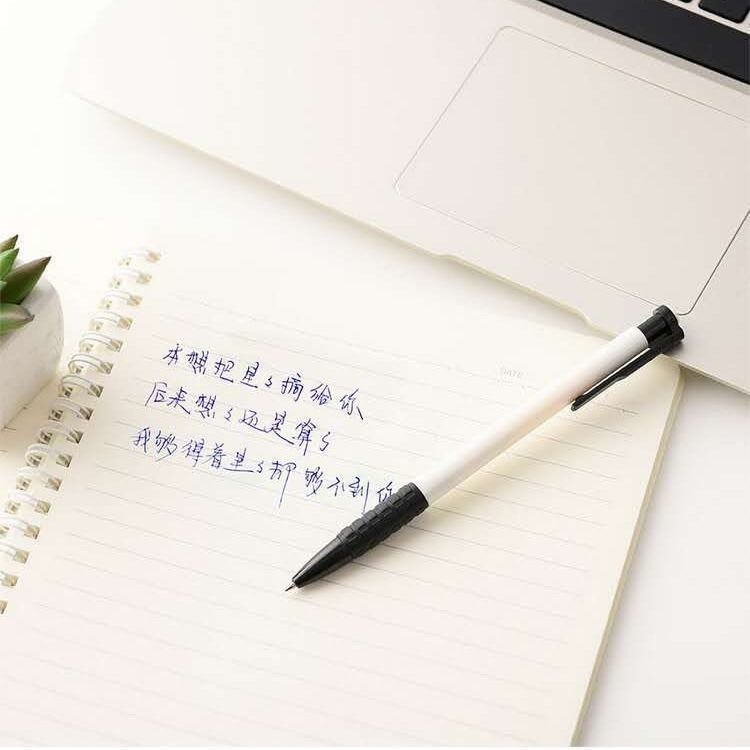 DATE
本想把星々摘给你
后来想々还是算了
我够得着星々却够不到你